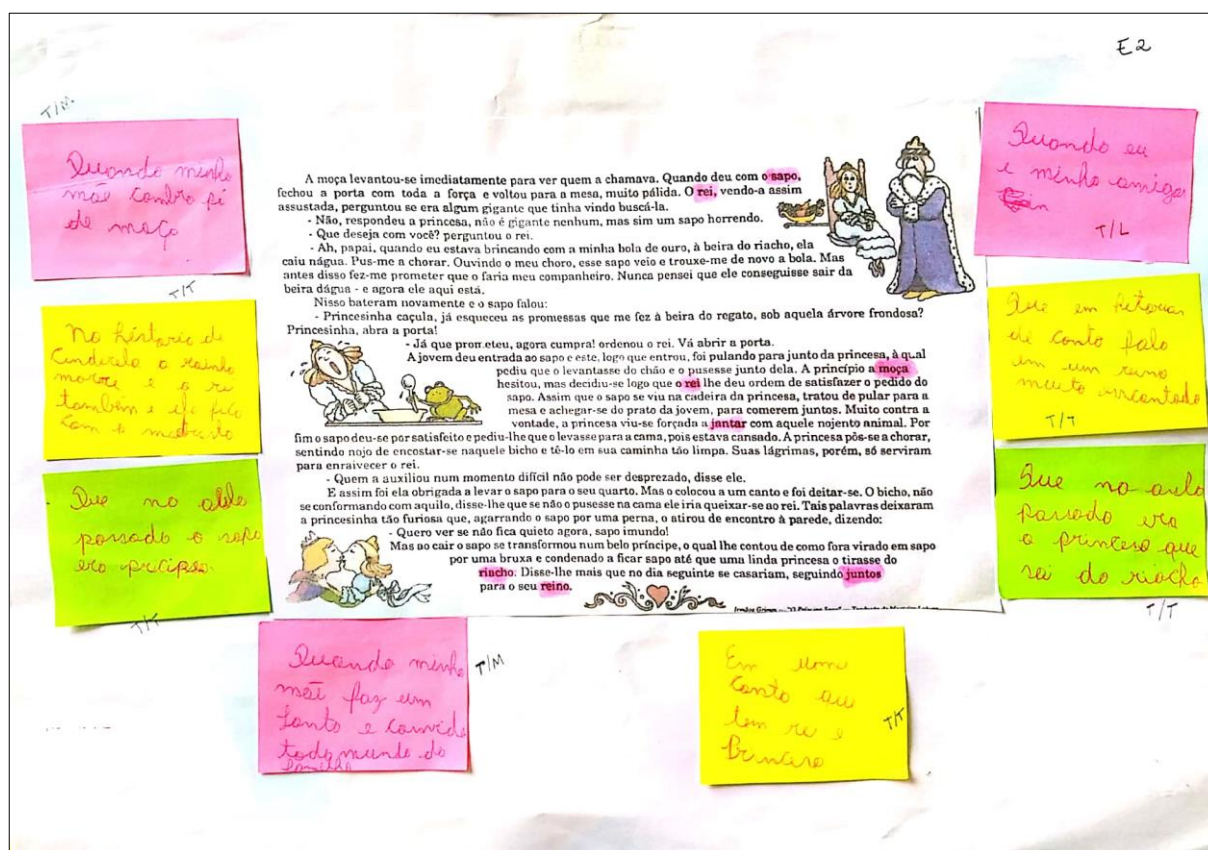 E2
T/M
Quando minha
mãe combra pé
de moça
T/T
Na história de
Cinderela a rainha
morre e o rei
também e ela fica
com a madrasta
Que na
passado o sapo
era
T/T
A moça levantou-se imediatamente para ver quem a chamava. Quando deu com o sapo,
fechou a porta com toda a força e voltou para a mesa, muito pálida. O rei, vendo-a assim
assustada, perguntou se era algum gigante que tinha vindo buscá-la.
- Não, respondeu a princesa, não é gigante nenhum, mas sim um sapo horrendo.
- Que deseja com você? perguntou o rei.
- Ah, papai, quando eu estava brincando com a minha bola de ouro, à beira do riacho, ela
caiu nágua. Pus-me a chorar. Ouvindo o meu choro, esse sapo veio e trouxe-me de novo a bola. Mas
antes disso fez-me prometer que o faria meu companheiro. Nunca pensei que ele conseguisse sair da
beira dágua - e agora ele aqui está.
Nisso bateram novamente e o sapo falou:
- Princesinha caçula, já esqueceu as promessas que me fez à beira do regato, sob aquela árvore frondosa?
Princesinha, abra a porta!
- Já que prometeu, agora cumpra! ordenou o rei. Vá abrir a porta.
A jovem deu entrada ao sapo e este, logo que entrou, foi pulando para junto da princesa, à qual
pediu que o levantasse do chão e o pusesse junto dela. A princípio a moça
hesitou, mas decidiu-se logo que o rei lhe deu ordem de satisfazer o pedido do
sapo. Assim que o sapo se viu na cadeira da princesa, tratou de pular para a
mesa e achegar-se do prato da jovem, para comerem juntos. Muito contra a
vontade, a princesa viu-se forçada a jantar com aquele nojento animal. Por
fim o sapo deu-se por satisfeito e pediu-lhe que o levasse para a cama, pois estava cansado. A princesa pôs-se a chorar,
sentindo nojo de encostar-se naquele bicho e tê-lo em sua caminha tão limpa. Suas lágrimas, porém, só serviram
para enraivecer o rei.
- Quem a auxiliou num momento difícil não pode ser desprezado, disse ele.
E assim foi ela obrigada a levar o sapo para o seu quarto. Mas o colocou a um canto e foi deitar-se. O bicho, não
se conformando com aquilo, disse-lhe que se não o pusesse na cama ele iria queixar-se ao rei. Tais palavras deixaram
a princesinha tão furiosa que, agarrando o sapo por uma perna, o atirou de encontro à parede, dizendo:
- Quero ver se não fica quieto agora, sapo imundo!
Mas ao cair o sapo se transformou num belo príncipe, o qual lhe contou de como fora virado em sapo
por uma bruxa e condenado a ficar sapo até que uma linda princesa o tirasse do
riacho. Disse-lhe mais que no dia seguinte se casariam, seguindo juntos
para o seu reino.
Quando eu
e minha amiga
T/L
Que em
de conto fala
em um reino
muito encantado
T/T
Que na aula
passado era
a princesa que
sai do riacho
T/T
Quando minha
mãe faz um
Janta e convida
todo mundo da
família
T/M
Em uma
conto que
tem rei e
Princesa
T/T